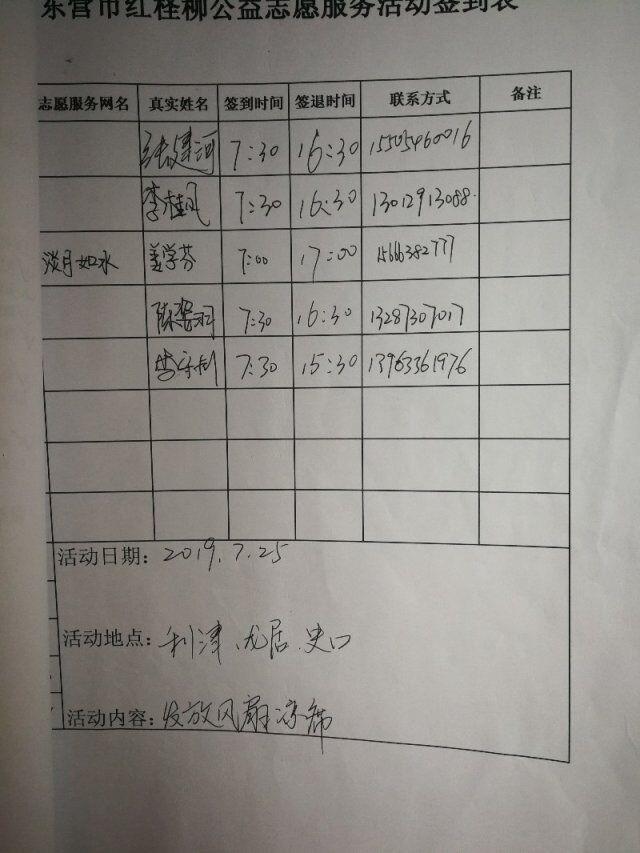 东营市红柽柳公益志愿服务活动签到表
志愿服务网名 真实姓名 签到时间 签退时间 联系方式 备注
张建河 7:30 16:30 15505460016
李桂凤 7:30 16:30 13012913088
淡月如水 姜学芬 7:00 17:00 15666382777
7:30 16:30 13287307017
7:30 15:30 13963361976
活动日期: 2019.7.25
活动地点: 利津、龙居、史口
活动内容: 发放风扇凉席